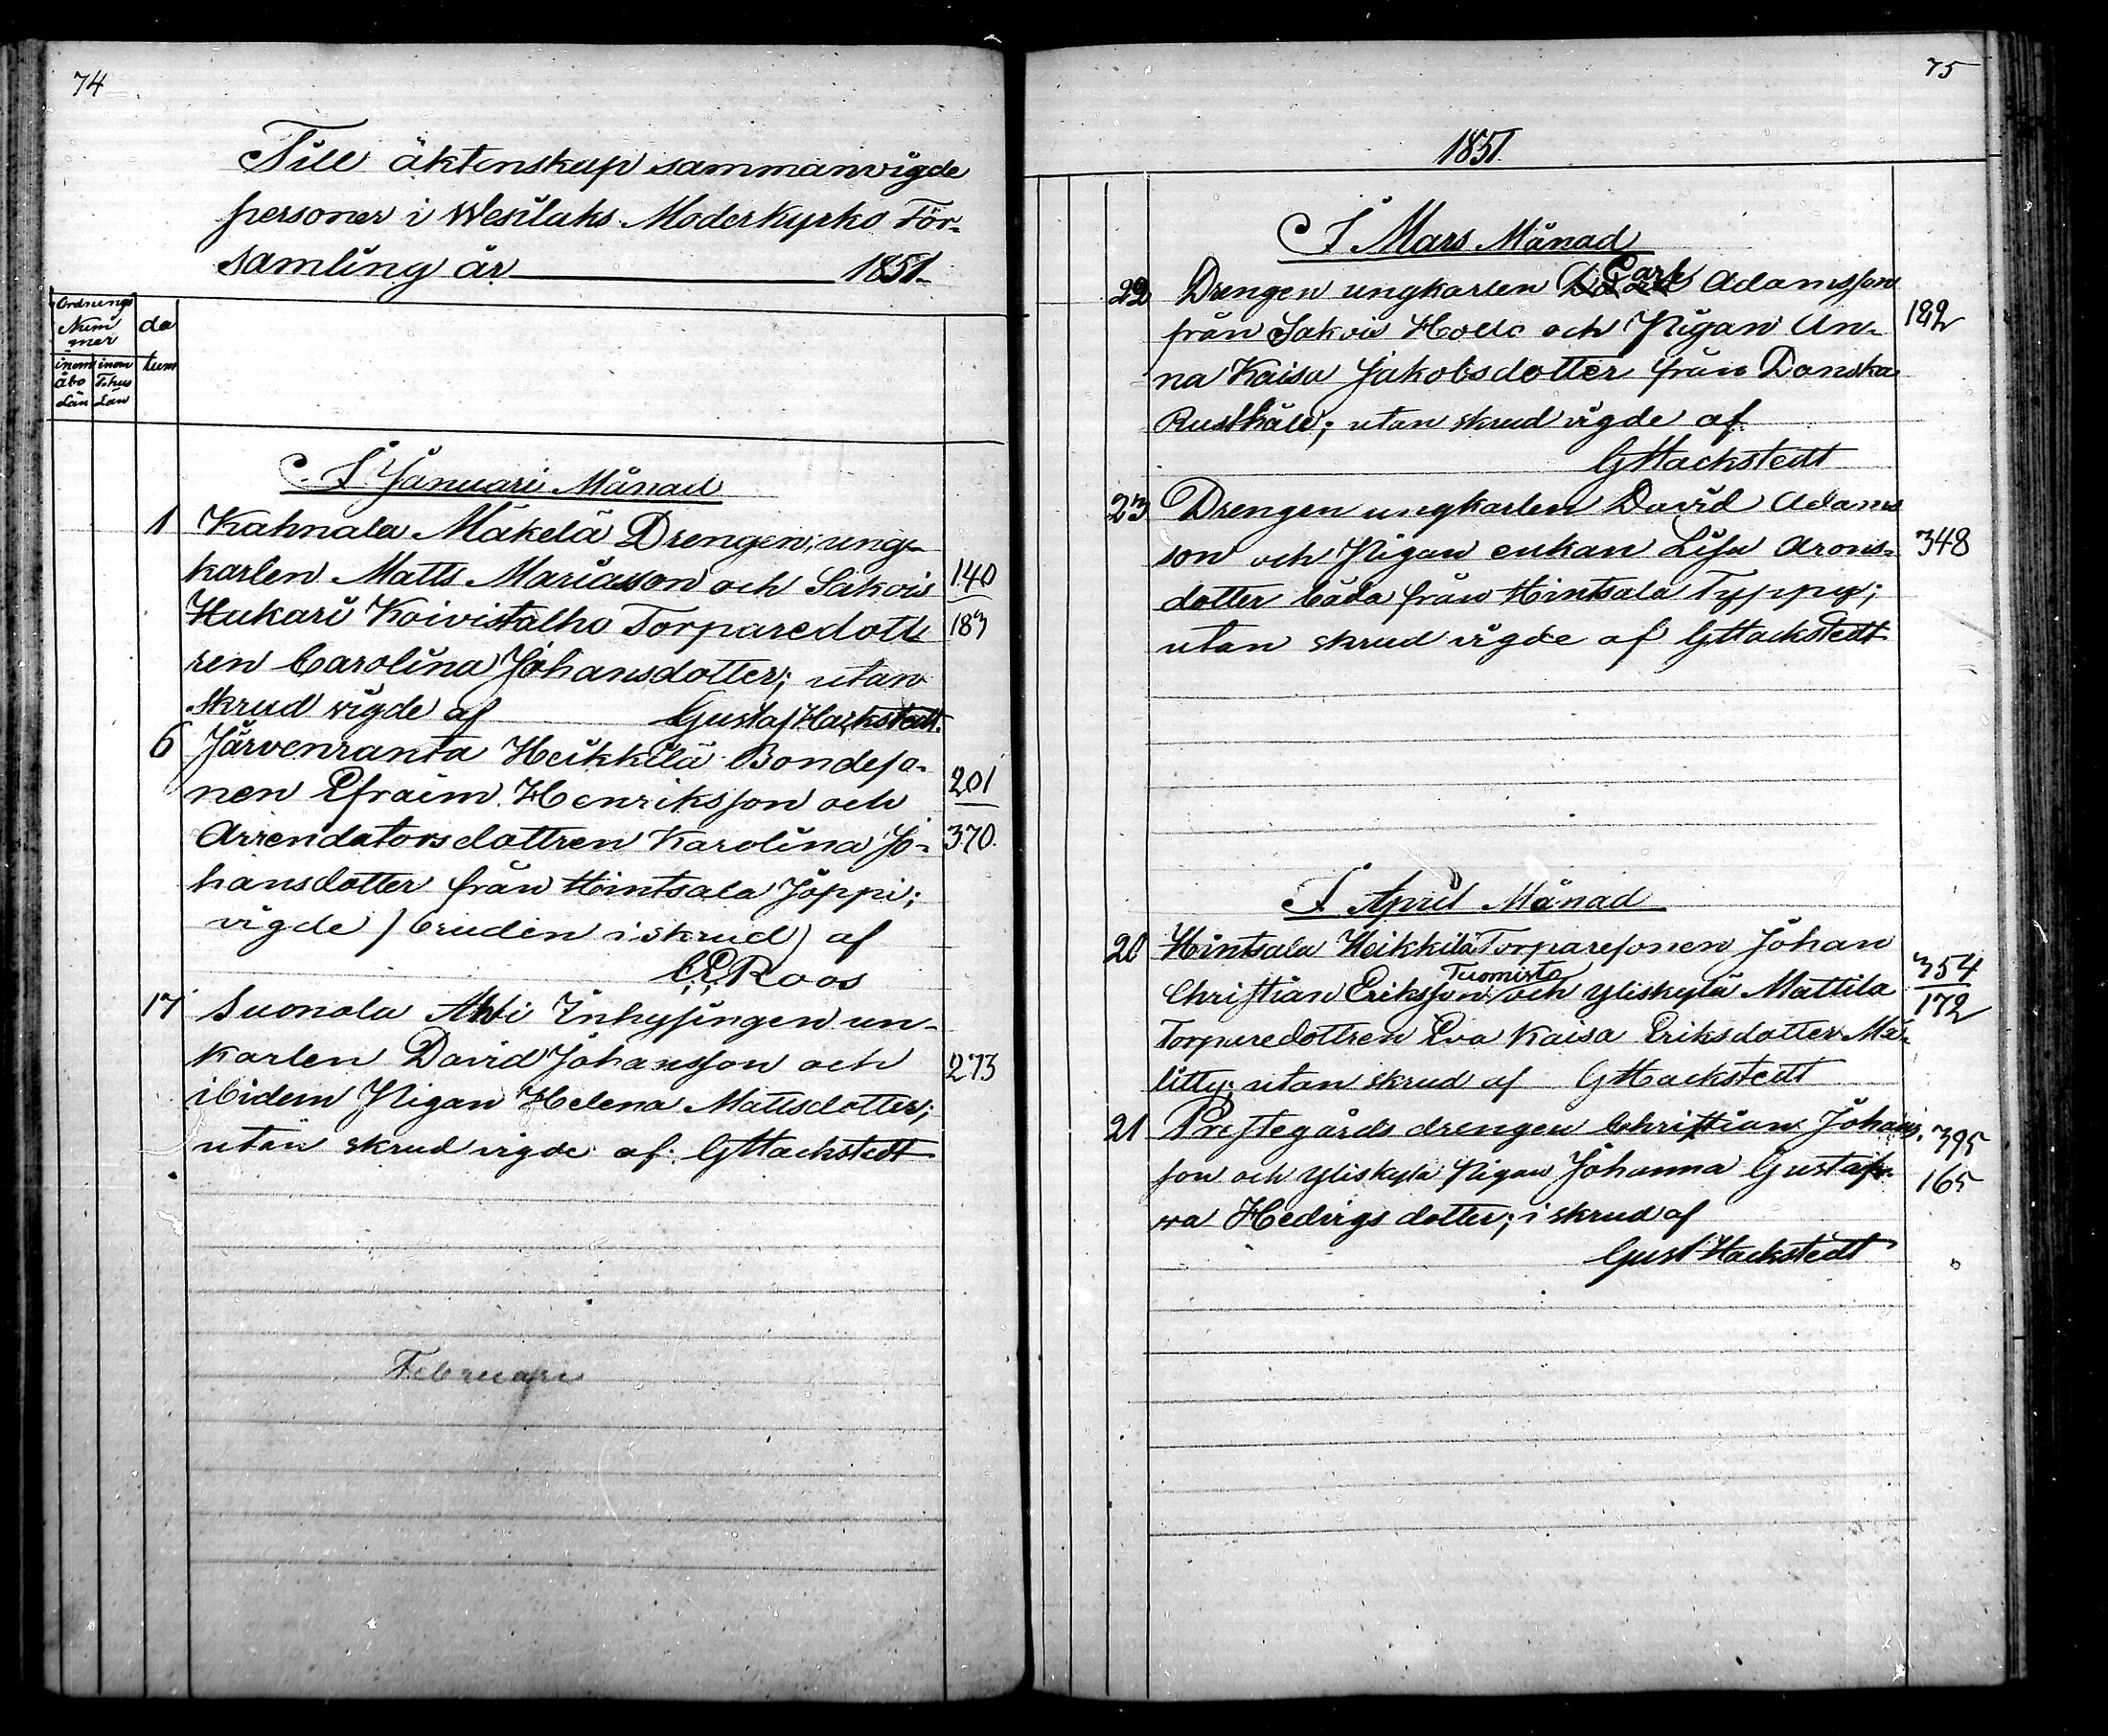 74
Till äktenskap sammanvigde
personer i Wesilaks Moderkyrko För-
samling år 1851.
Ordnings
Num
mer
da
tum
inom Åbo Län
inom T:hus Län
I Januari Månad
1 Kahnala Mäkelä Drengen, ung-
karlen Matts Mariasson och Sakois 140
Hukari Koivistalho Torparedott 183
ren Carolina Johansdotter; utan
skrud vigde af Gustaf Hackstedt.
6 Järvenranta Heikkilä Bondeso-
nen Efraim Henriksson och 201
Arrendatorsdottren Karolina Jo- 370.
hansdotter från Hintsala Jöppi;
vigde / bruden i skrud) af
C.E. Roos
17 Suonola Ahti Inhysingen un-
karlen David Johansson och 273
ibidem Pigan Helena Mattsdotter;
utan skrud vigde af GHackstedt
Februari
75
1851.
I Mars Månad
22 Drengen ungkarlen Carl Adamsson
från Sakois Hollo och Pigan An- 182
na Kaisa Jakobsdotter från Danska
Rusthåll; utan skrud vigde af
GHackstedt
23 Drengen ungkarlen David Adams
son och Pigan enkan Lisa Arons- 348
dotter båda från Hintsala Typpy;
utan skrud vigde af GHackstedt
I April Månad
20 Hintsala Heikkilä Torparesonen Johan
Christian Eriksson Tuomisto och Yliskylä Mattila 354
172
Torparedottren Eva Kaisa Eriksdotter Mä-
litty; utan skrud af GHackstedt
21 Prestegårds drengen Christian Johans- 395
son och Yliskylä Pigan Johanna Gustaf- 165
va Hedvigs dotter; i skrud af
Gust Hackstedt